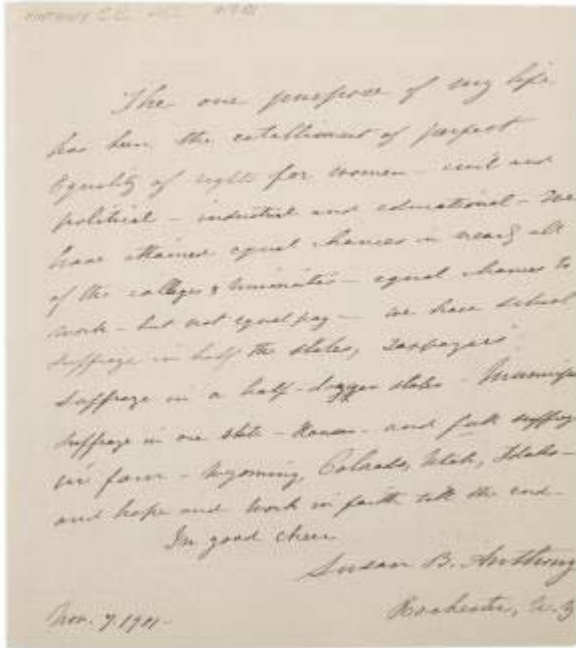 The one purpose of my life
has been the establiment of perfect
Equality of rights for women - civil and
political - industrial and educational - We
have attained equal chances in nearly all
of the colleges & Universities - equal chances to
work - but not equal pay - we have school
suffrage in half the states, taxpayers'
suffrage in a half-dozzen states - Municipal
suffrage in one state - Kansas - and full suffrage
in four - Wyoming, Colorado, Utah, Idaho -
and hope and work in faith till the end -
In good cheer
Susan B. Anthony
Rochester, N.Y.
Nov. 7. 1901 -